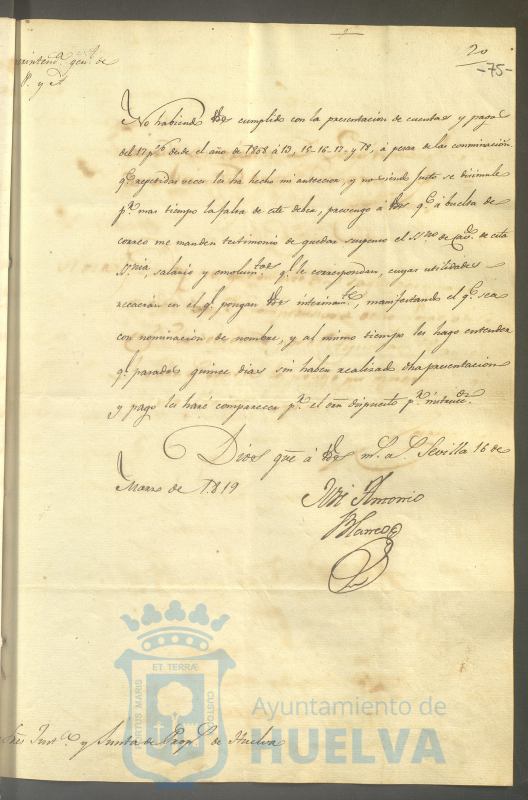 20
-75-
gen.l de
P. y A
No habiendo Vds cumplido con la presentacion de cuentas y pago
del 17 p% desde el año de 1808 á 13, 15-16-17-y 18, á pesar de las conminacion.
q.e repetidas veces les ha hecho mi antecesor, y no siendo justo se disimule
p.r mas tiempo la falta de este deber, prevengo á Vds q.e á buelta de
correo me manden testimonio de quedar suspenso el SS.no de Cav.do de esta
salario y emolum.tos q.e le correspondan, cuyas utilidades
recaerán en el q.e pongan Vds interinam.te, manifestando el q.e sea
con nominacion de nombre, y al mismo tiempo les hago entender
q.e pasados quince dias sin haber realizado dha presentacion
y pago les haré comparecer p.r el orn dispuesto p.r instrucc.n
Dios gue á Vds m.s a.s Sevilla 16 de
Marzo de 1819
José Antonio
Blanco
S.res Just.a y Junta de Prop.s de Huelva
PORTUS MARIS
ET TERRÆ
CUSTODIA
Ayuntamiento de
HUELVA